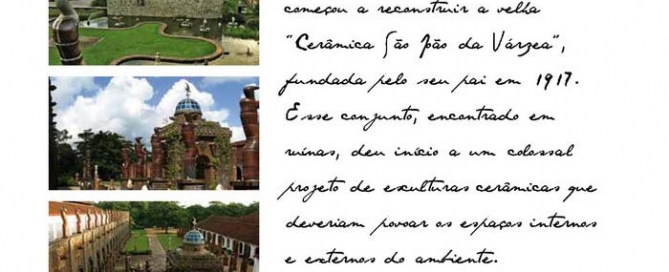 começou a reconstruir a velha
"Cerâmica São João da Várzea",
fundada pelo seu pai em 1917.
Esse conjunto, encontrado em
ruínas, deu início a um colossal
projeto de esculturas cerâmicas que
deveriam povoar os espaços internos
e externos do ambiente.